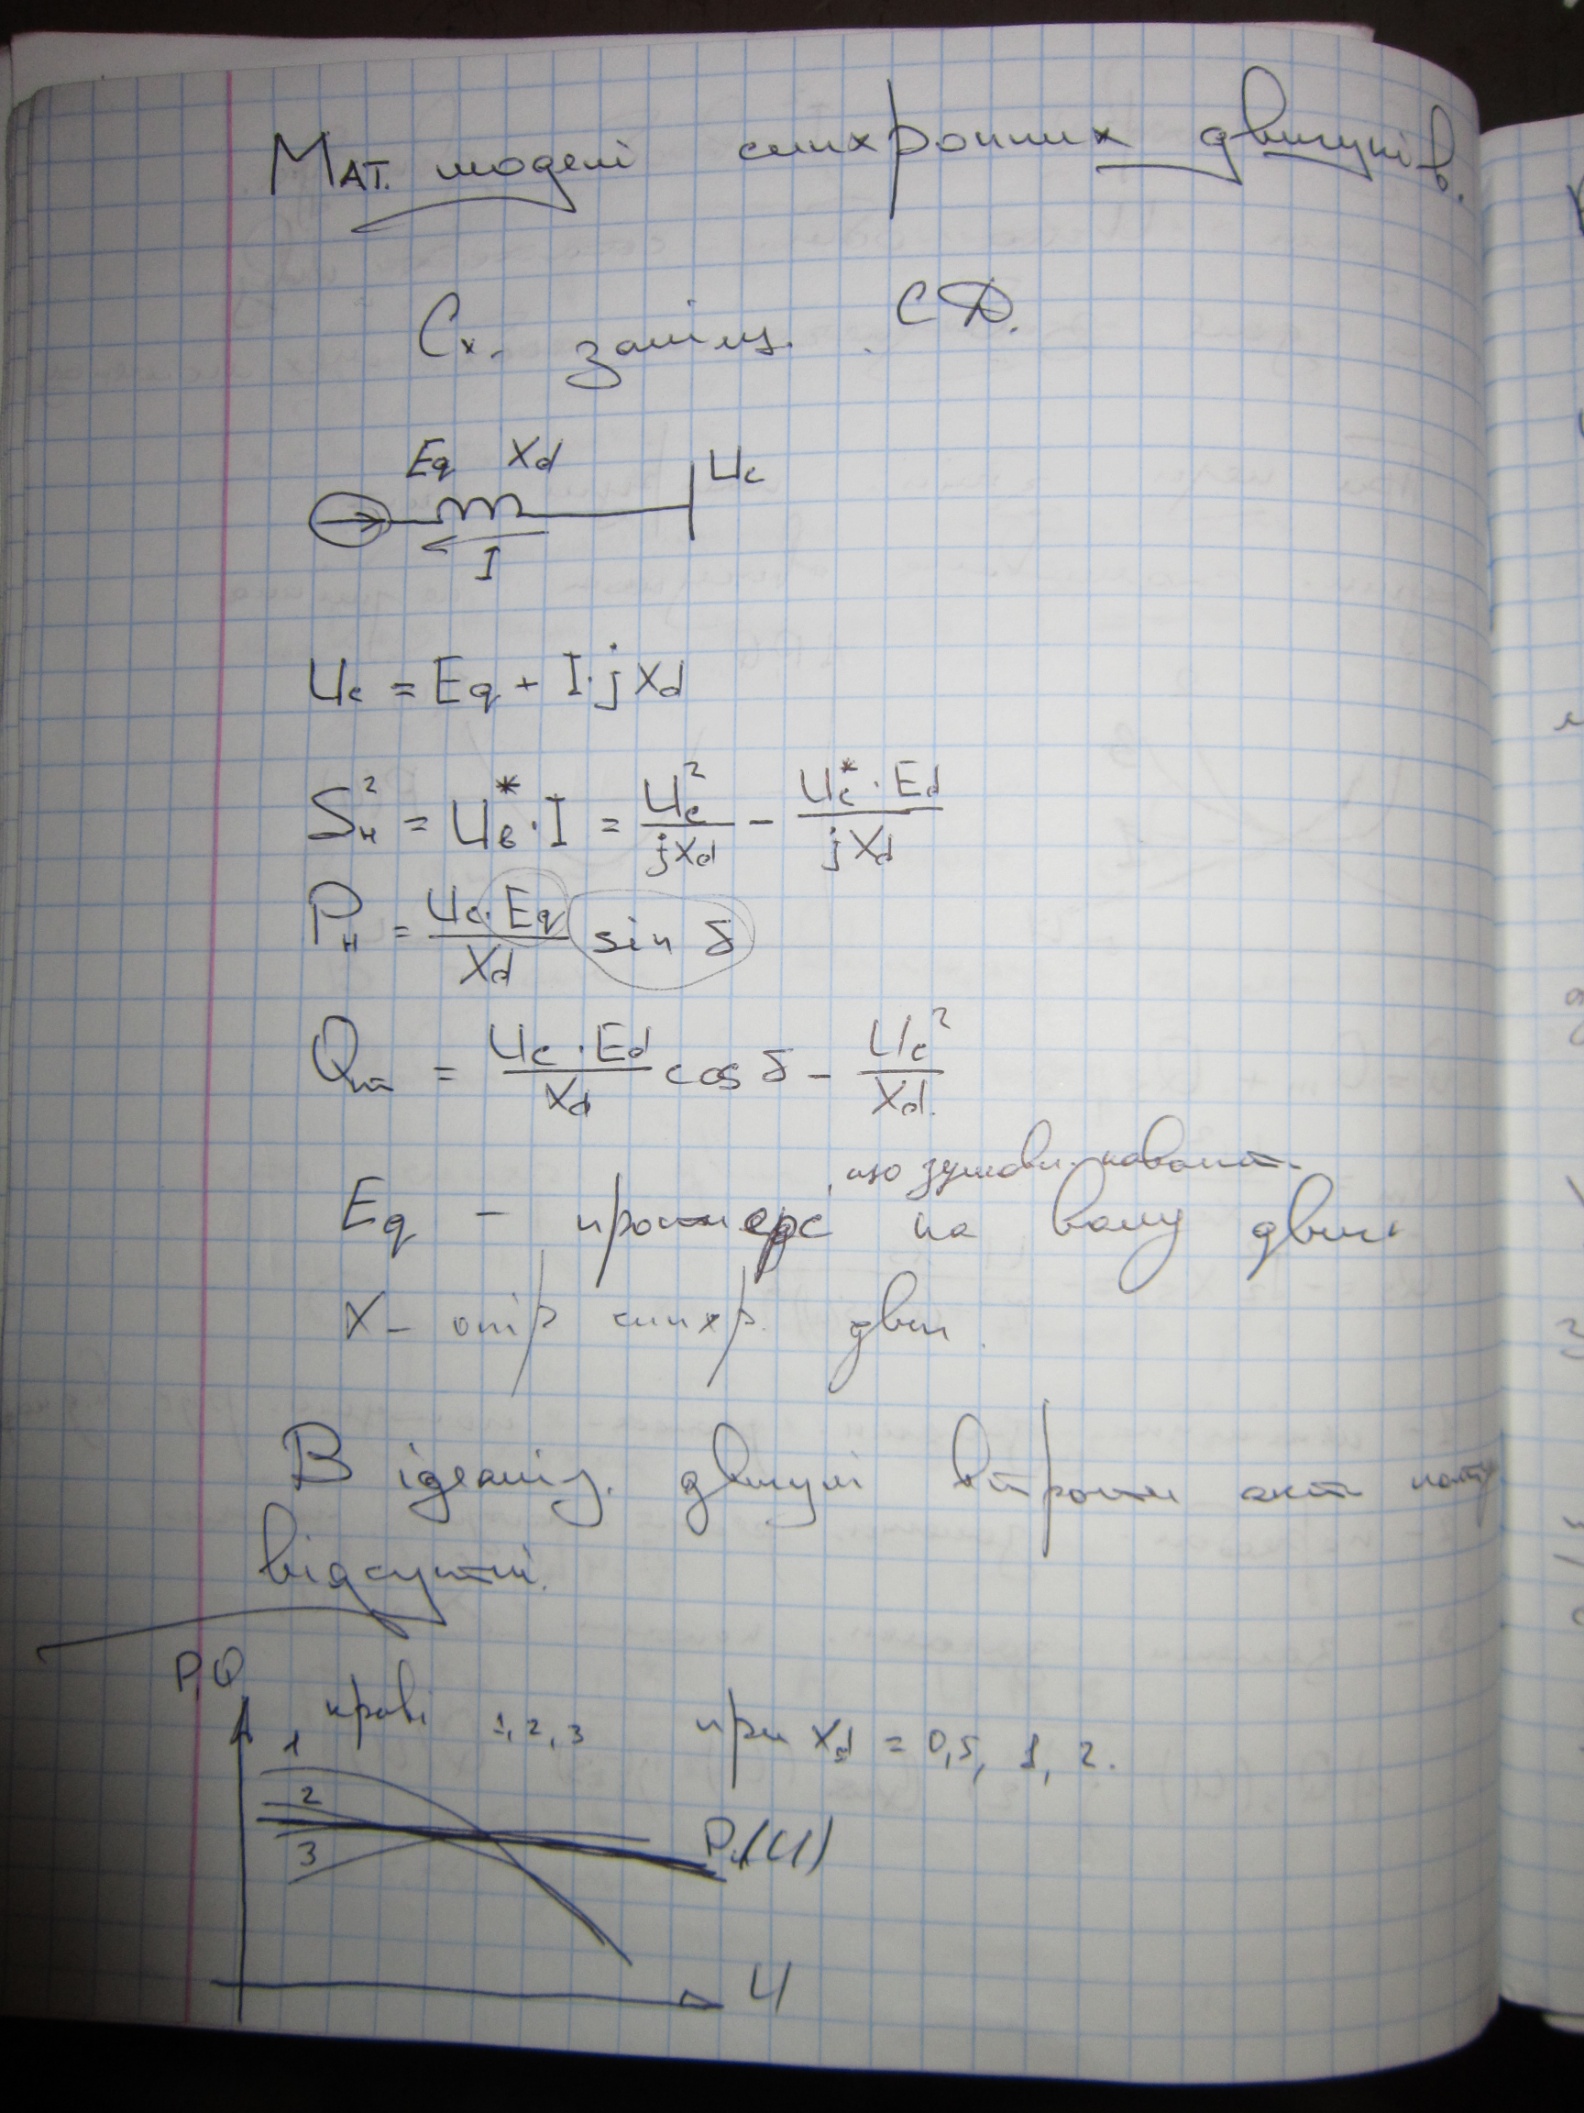 Мат. моделі синхронних двигунів.
Сх. заміщ. СД.
Eq Xd Uc
I
Uc = Eq + I·jXd
Sн² = Uв*·I = Uc²/jXd − Uc*·Ed/jXd
Pн = Uc·Eq/Xd sin δ
Qm = Uc·Ed/Xd cos δ − Uc²/Xd.
що зумовл. навант.
Eq – проти ерс на валу двиг.
X – опір синхр. двиг.
В ідеаліз. двигуні втрати акт. потуж
відсутні.
P,Q
криві 1, 2, 3 при Xd = 0,5, 1, 2.
1
2
3
Pн(U)
U